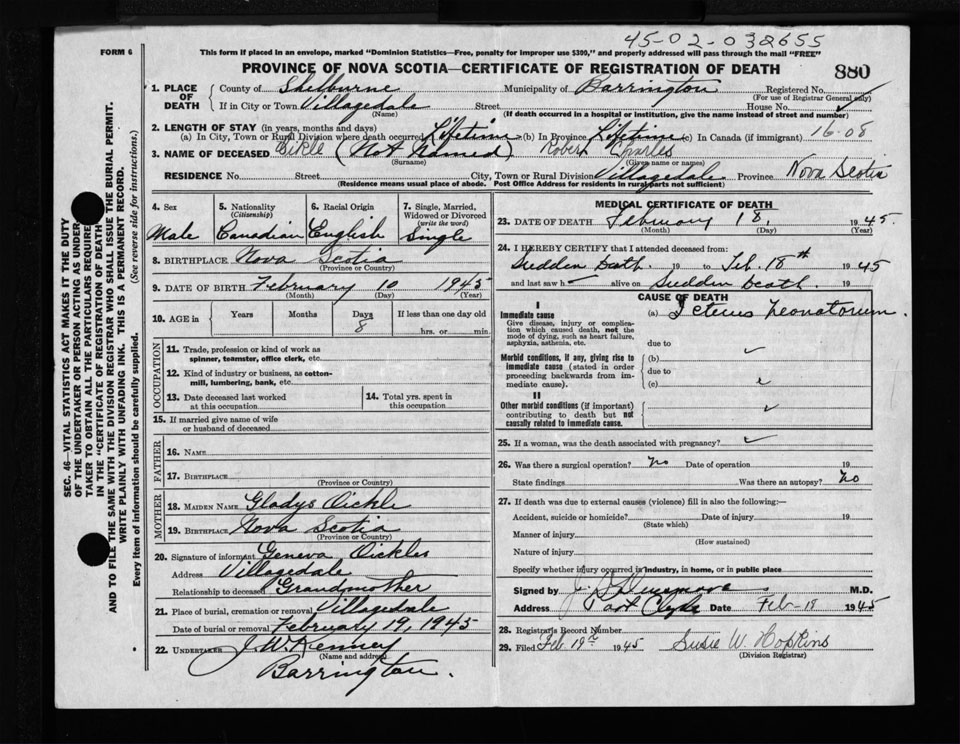 45-02-032655
FORM 6
This form if placed in an envelope, marked "Dominion Statistics—Free, penalty for improper use $300," and properly addressed will pass through the mail "FREE"
PROVINCE OF NOVA SCOTIA—CERTIFICATE OF REGISTRATION OF DEATH
880
1. PLACE OF DEATH
County of Shelburne Municipality of Barrington Registered No.
(For use of Registrar General only)
If in City or Town Villagedale Street House No.
(Name) (If death occurred in a hospital or institution, give the name instead of street and number)
2. LENGTH OF STAY (in years, months and days)
(a) In City, Town or Rural Division where death occurred Lifetime (b) In Province Lifetime (c) In Canada (if immigrant) 16-08
3. NAME OF DECEASED (Not Named) Robert Charles
(Surname) (Given name or names)
RESIDENCE No. Street City, Town or Rural Division Villagedale Province Nova Scotia
(Residence means usual place of abode. Post Office Address for residents in rural parts not sufficient)
SEC. 46—VITAL STATISTICS ACT MAKES IT THE DUTY
OF THE UNDERTAKER OR PERSON ACTING AS UNDER-
TAKER TO OBTAIN ALL THE PARTICULARS REQUIRED
IN THE "CERTIFICATE OF REGISTRATION OF DEATH
AND TO FILE THE SAME WITH THE DIVISION REGISTRAR WHO SHALL ISSUE THE BURIAL PERMIT.
WRITE PLAINLY WITH UNFADING INK. THIS IS A PERMANENT RECORD.
Every item of information should be carefully supplied. (See reverse side for instructions.)
4. Sex
Male
5. Nationality
(Citizenship)
Canadian
6. Racial Origin
English
7. Single, Married,
Widowed or Divorced
(write the word)
Single
8. BIRTHPLACE Nova Scotia
(Province or Country)
9. DATE OF BIRTH February 10 1945
(Month) (Day) (Year)
10. AGE in Years Months Days If less than one day old
8 hrs. or min.
OCCUPATION
11. Trade, profession or kind of work as
spinner, teamster, office clerk, etc.
12. Kind of industry or business, as cotton-
mill, lumbering, bank, etc.
13. Date deceased last worked
at this occupation
14. Total yrs. spent in
this occupation
15. If married give name of wife
or husband of deceased
FATHER
16. NAME
17. BIRTHPLACE
(Province or Country)
MOTHER
18. MAIDEN NAME Gladys Oickle
19. BIRTHPLACE Nova Scotia
(Province or Country)
20. Signature of informant Geneva Oickles
Address Villagedale
Relationship to deceased Grandmother
21. Place of burial, cremation or removal Villagedale
Date of burial or removal February 19, 1945
22. UNDERTAKER J. W. Kenney
(Name and address)
Barrington.
MEDICAL CERTIFICATE OF DEATH
23. DATE OF DEATH February 18, 1945
(Month) (Day) (Year)
24. I HEREBY CERTIFY that I attended deceased from:
Sudden Death. 19 to Feb. 18th 1945
and last saw h alive on Sudden Death. 19
CAUSE OF DEATH
I
Immediate cause
Give disease, injury or complica-
tion which caused death, not the
mode of dying, such as heart failure,
asphyxia, asthenia, etc.
(a) Icterus neonatorum.
due to
Morbid conditions, if any, giving rise to
immediate cause (stated in order
proceeding backwards from im-
mediate cause).
(b)
due to
(c)
II
Other morbid conditions (if important)
contributing to death but not
causally related to immediate cause.
25. If a woman, was the death associated with pregnancy?
26. Was there a surgical operation? No Date of operation 19
State findings Was there an autopsy? No
27. If death was due to external causes (violence) fill in also the following:—
Accident, suicide or homicide? Date of injury 19
(State which)
Manner of injury
(How sustained)
Nature of injury
Specify whether injury occurred in industry, in home, or in public place
Signed by M.D.
Address Port Clyde Date Feb-18 1945
28. Registrar's Record Number
29. Filed Feb. 19th 1945 Susie W. Hopkins
(Division Registrar)